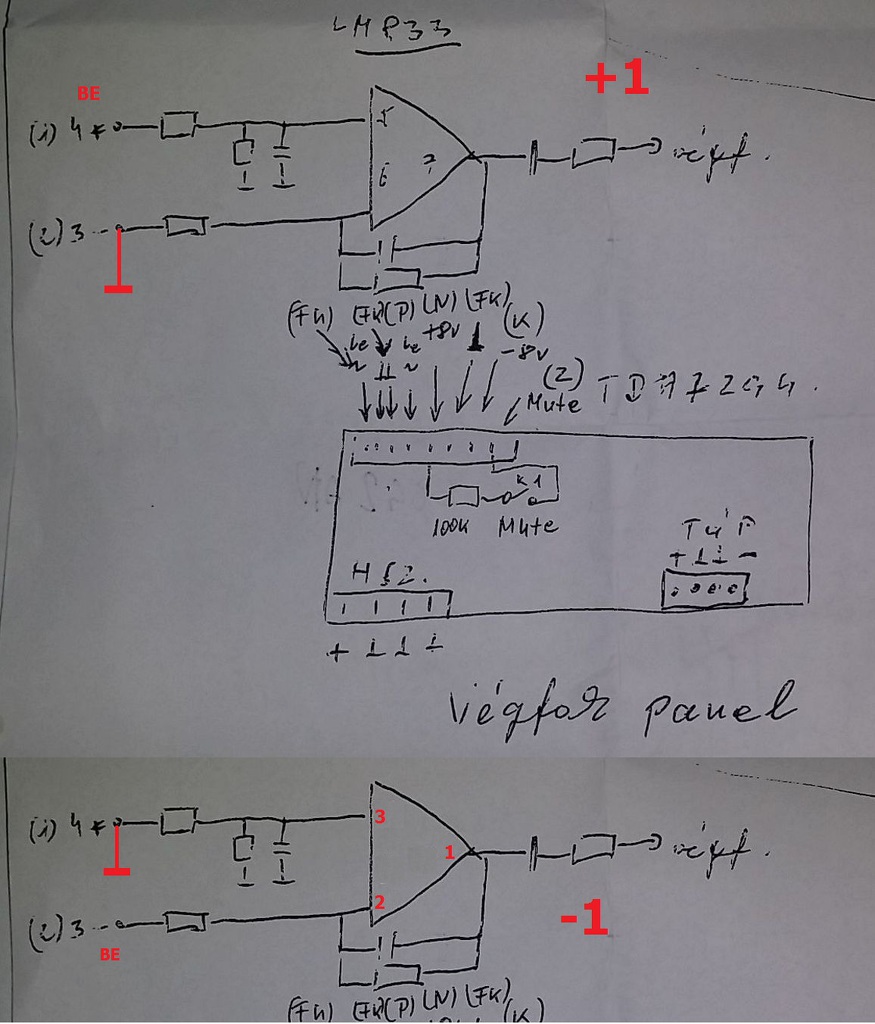 LMP33
BE
+1
(1) 4 *
5
6
7
végf.
(2) 3
(Fk) (Fk) (P) (N) (Fk)
(K)
+8v
-8v
(Z)
Mute
TDA7294.
K1
100k Mute
Táp
+ ⊥ ⊥ -
+ ⊥ ⊥ ⊥
végfok panel
(1) 4 *
3
1
végf.
2
(2) 3
BE
-1
(Fk) (Fk) (P) (N) (Fk)
(K)